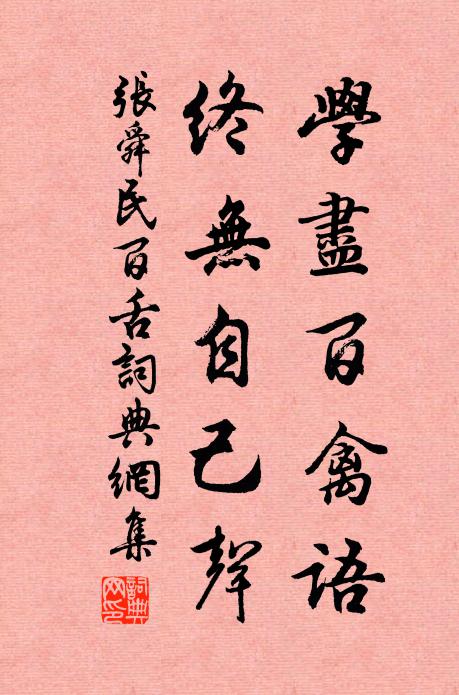 學盡百禽語
終無自己聲
張舜民百舌詞典網集
詞典網印